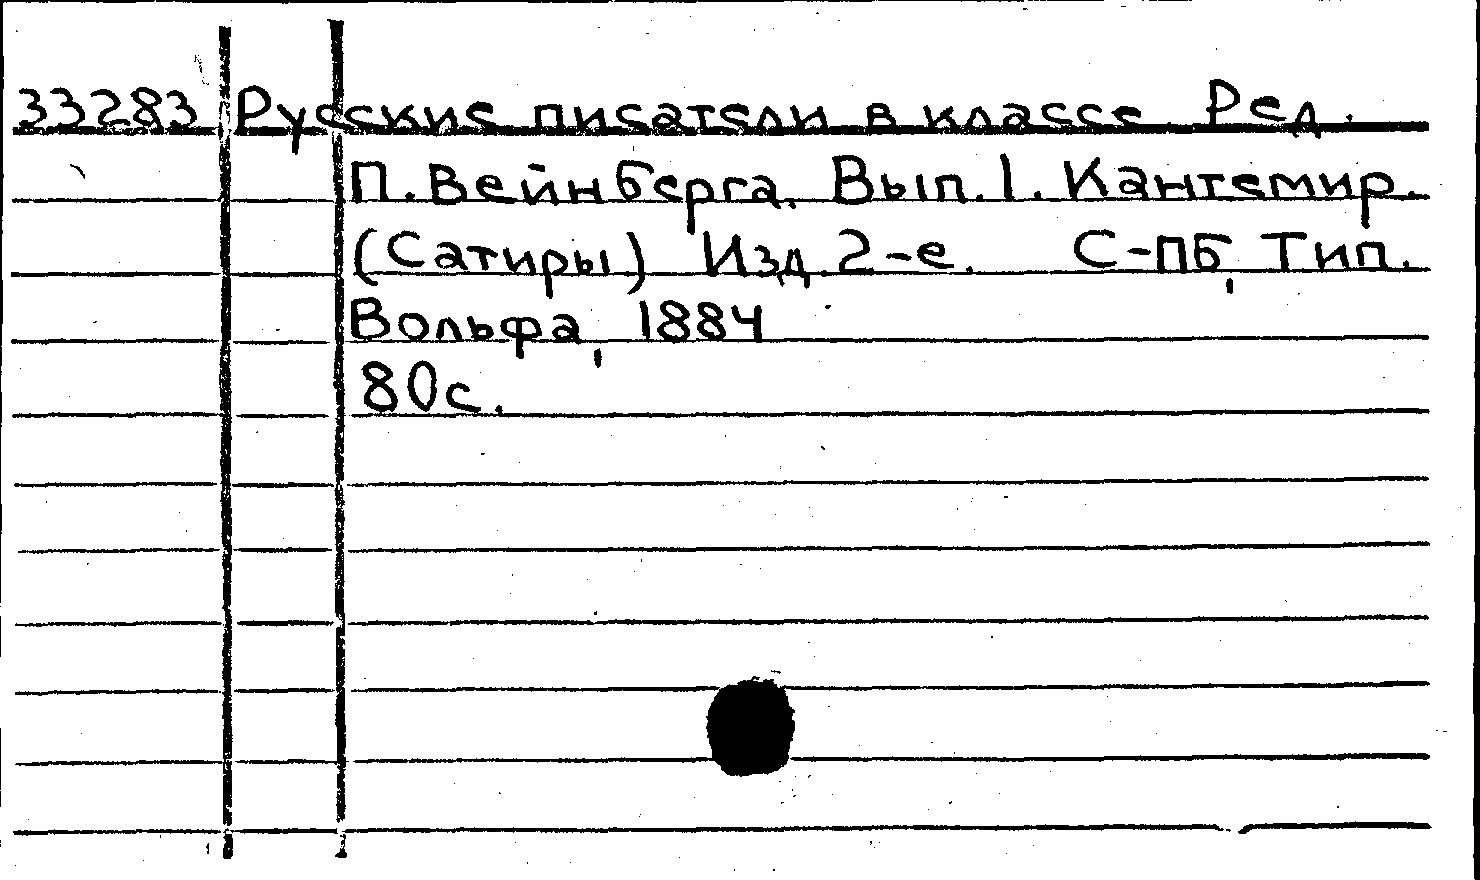 33283 Русские писатели в классе. Ред.
П. Вейнберга. Вып. 1. Кантемир.
(Сатиры) Изд. 2-е. С-ПБ, Тип.
Вольфа, 1884
80с.